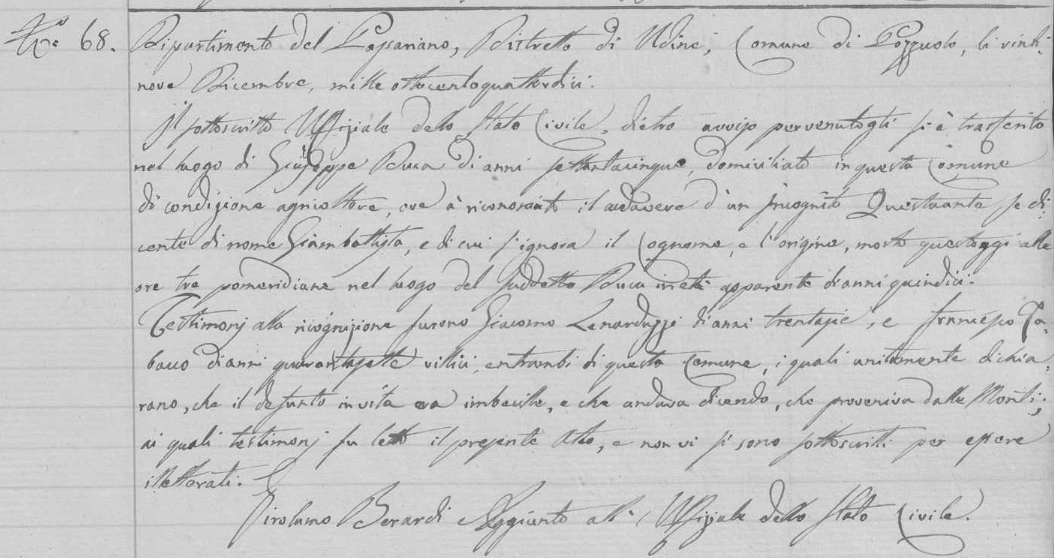 N.° 68. Dipartimento del Passariano, Distretto di Udine, Comune di Pozzuolo, li vinti
nove Dicembre, mille ottocentoquattordici.
Il sottoscritto Uffiziale dello Stato Civile, dietro avviso pervenutogli si è trasferito
nel luogo di Giuseppe Duca di anni settantacinque, domiciliato in questa Comune
di condizione agricoltore, ove à riconosciuto il cadavere d'un Incognito Questuante se di
cente di nome Giambattista, e di cui s'ignora il Cognome, e l'origine, morto quest'oggi alle
ore tre pomeridiane nel luogo del suddetto Duca in età apparente di anni quindici.
Testimonj alla ricognizione furono Giacomo Lenarduzzi di anni trentasei, e Francesco Ta-
bacco di anni quarantasette villici, entrambi di questa Comune, i quali unitamente dichia-
rano, che il defunto in vita era imbecille, e che andava dicendo, che proveniva dalle Monti;
ai quali testimonj fu letto il presente Atto, e non vi si sono sottoscritti per essere
illetterati.
Girolamo Berardi Aggiunto all' Uffiziale dello Stato Civile.